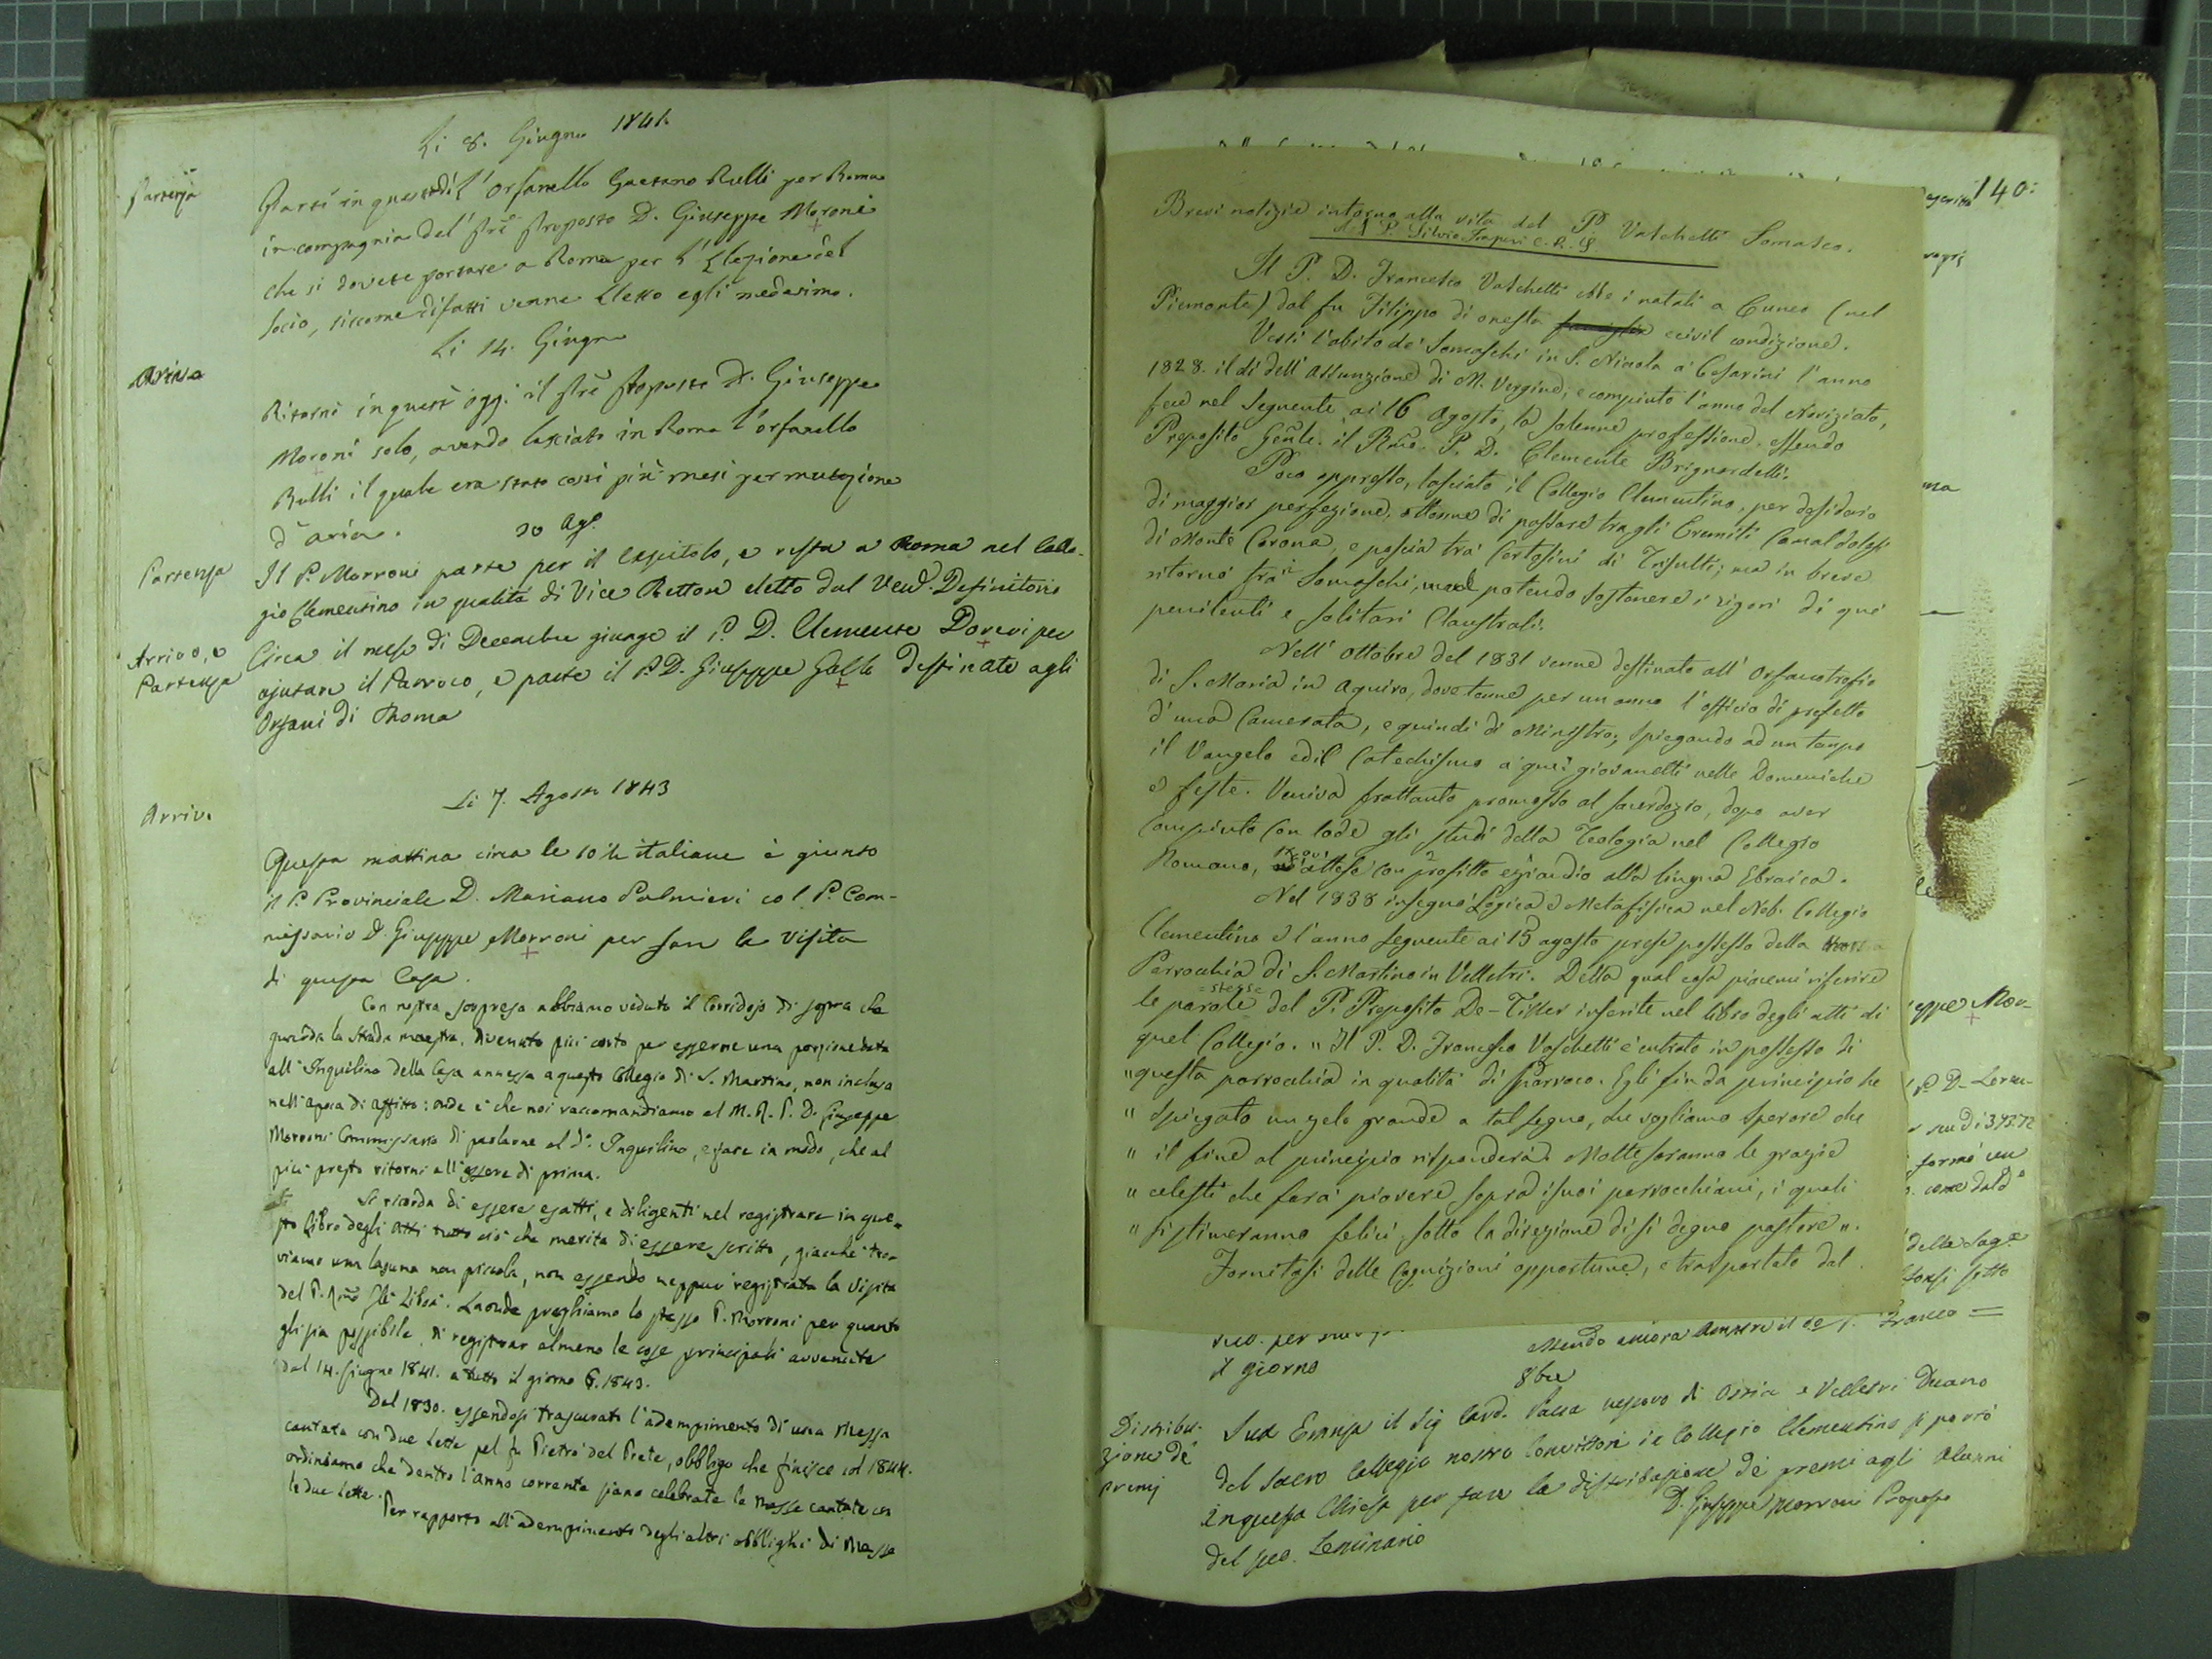 Li 8. Giugno 1841.
Partenza
Partì in questo dì l'Orfanello Gaetano Rulli per Roma
in compagnia del Pre Proposto D. Giuseppe Moroni
che si dovete portare a Roma per l'Elezione del
Socio, siccome difatti venne Eletto egli medesimo.
Li 14. Giugno
Arivo
Ritornì in quest'oggi il Pre Proposto D. Giuseppe
Moroni solo, avendo lasciato in Roma l'orfanello
Rulli il quale era stato costì più mesi per mutazione
d'aria.
20 Ag.
Partenza
Il P. Morroni parte per il Capitolo, e resta a Roma nel Colle-
gio Clementino in qualità di Vice Rettore eletto dal Ven. Definitorio
Arrivo, e
Partenza
Circa il mese di Decembre giunge il P. D. Clemente Dorevi per
ajutare il Parroco, e parte il P. D. Giuseppe Gallo destinato agli
Orfani di Roma
Li 7. Agosto 1843
Arrivo
Questa mattina circa le 10 ½ italiane è giunto
il P. Provinciale D. Mariano Palmieri col P. Com-
missario D. Giuseppe Morroni per fare la visita
di questa Casa.
Con nostra sorpresa abbiamo veduto il Corridojo di sopra che
guarda la strada maestra, divenuto più corto per esserne una porzione data
all'Inquilino della Casa annessa a questo Collegio di S. Martino, non inclusa
nell'apoca di affitto: onde è che noi raccomandiamo al M. R. P. D. Giuseppe
Morroni Commissario di parlarne al do. Inquilino, e fare in modo, che al
più presto ritorni all'essere di prima.
Si ricorda di essere esatti, e diligenti nel registrare in que-
sto Libro degli Atti tutto ciò che merita di essere scritto, giacchè tro-
viamo una laguna non piccola, non essendo neppur registrata la visita
del P. Rmo Gle Libois. Laonde preghiamo lo stesso P. Morroni per quanto
gli sia possibile, di registrar almeno le cose principali avvenute
dal 14. Giugno 1841. a tutto il giorno 6. 1843.
Dal 1830. essendosi trascurato l'adempimento di una Messa
cantata con due lette pel fu Pietro del Prete, obbligo che finisce col 1844.
ordiniamo che dentro l'anno corrente siano celebrate le Messe cantate con
le due lette.
Per rapporto all'adempimento degli altri obblighi di Messe
140:
Brevi notizie intorno alla vita del P. Vaschetti Somasco.
del P. Silvio Imperi C. R. S.
Il P. D. Francesco Vaschetti ebbe i natali a Cuneo (nel
Piemonte) dal fu Filippo di onesta famiglia e civil condizione.
Vestì l'abito de' Somaschi in S. Nicola a' Cesarini l'anno
1828. il dì dell'Assunzione di M. Vergine; e compiuto l'anno del Noviziato,
fece nel seguente ai 16 Agosto, la solenne professione, essendo
Preposito Gēnle. il Rmo. P. D. Clemente Brignardelli.
Poco appresso, lasciato il Collegio Clementino, per desiderio
di maggior perfezione, ottenne di passare tra gli Eremiti Camaldolesi
di Monte Corona, e poscia tra' Certosini di Trisulti; ma in breve
ritornò tra i Somaschi, mal potendo sostenere i rigori di que'
penitenti e solitari Claustrali.
Nell'ottobre del 1831 venne destinato all'Orfanotrofio
di S. Maria in Aquiro, dove tenne per un anno l'officio di prefetto
d'una Camerata, e quindi di Ministro; spiegando ad un tempo
il Vangelo ed il Catechismo a quei giovanetti nelle Domeniche
e feste. Veniva frattanto promosso al sacerdozio, dopo aver
compiuto con lode gli studi della Teologia nel Collegio
Romano, ove attese con profitto eziandio alla lingua Ebraica.
Nel 1838 insegnò Logica e Metafisica nel Nob. Collegio
Clementino e l'anno seguente ai 15 agosto prese possesso della
Parrocchia di S. Martino in Velletri. Della qual cosa piacemi riferire
le stesse parole del P. Preposito De-Tisler inserite nel libro degli atti di
quel Collegio. "Il P. D. Francesco Vaschetti è entrato in possesso di
"questa parrocchia in qualità di Parroco. Egli fin da principio ha
"spiegato un zelo grande a tal segno, che vogliamo sperare che
"il fine al principio risponderà. Molte saranno le grazie
"celesti che farà piovere sopra i suoi parrocchiani, i quali
"si stimeranno felici sotto la direzione di sì degno pastore".
Fornitasi delle Cognizioni opportune, e trasportato dal
eppe Mor-
P. D. Loren-
scudi 375:72
formò un
come dal
della Sag.
sotto
il giorno
8bre
Distribu-
zione de'
premj
Sua Emnza il Sig Card. Pacca vescovo di Ostia e Velletri Decano
del Sacro Collegio nostro Convittore in Collegio Clementino si portò
in questa Chiesa per fare la distribuzione de' premi agli Alunni
del Seminario
D. Giuseppe Morroni Proposto